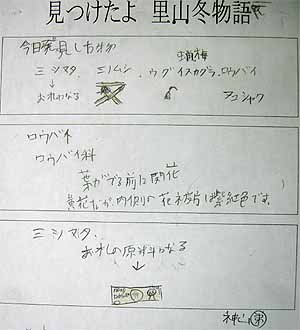 見つけたよ 里山冬物語
今日発見した物
蝋梅
ミシマタ、ミノムシ、ウグイスカグラ、ロウバイ
お札になる
アコシャク
ロウバイ
ロウバイ科
葉がでる前に開花
黄花だが、内側の花被片は紫紅色です。
ミシマタ、
お札の原料になる